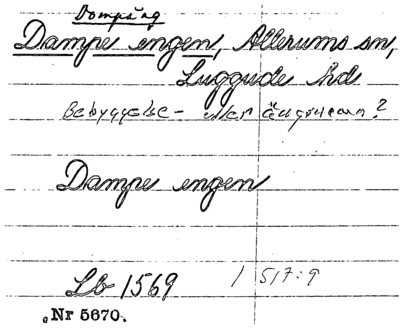 Dompäng
Dampe engen, Allerums sn,
Luggude hd
Bebyggelse- eller ängsnamn?
Dampe engen
Lb 1569 1517:9
Nr 5670.